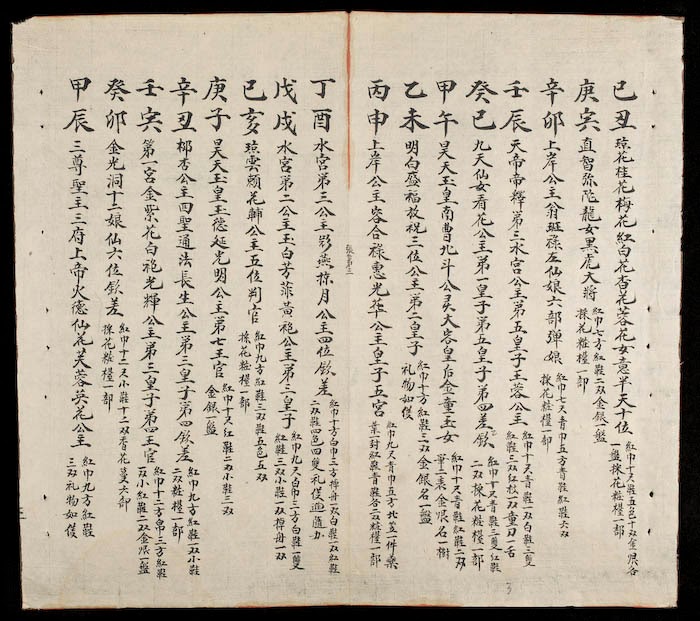 己丑 琼花桂花梅花紅白花杏花蓉花女意半天十位 紅鞋十双五色十双金銀各
盤揀花粧糧一部
庚寅 直智弥陀龍女黑虎大將 紅巾七方紅鞋二双金銀一盤
揀花粧糧一部
辛卯 上岸公主翁斑祿左仙娘六部弹娘 紅巾七尺青巾五方青鞋紅鞋六双
揀花粧糧一部
壬辰 天帝帝釋第三水宮公主第五皇子王蓉公主 紅巾十尺青鞋一双白鞋三隻
紅鞋三双紅枝一双童刀一舌
癸巳 九天仙女看花公主第一皇子第五皇子第四差欽 紅巾十尺青鞋三隻紅鞋
二双揀花粧糧一部
甲午 昊天玉皇南曹北斗公灵大吝皇后金童玉女 紅巾十尺青鞋紅鞋二双
金銀各一樹
乙未 明白盛福故祝三位公主第二皇子 紅巾十方紅鞋三双金銀各一盤
礼物如後
丙申 上岸公主容合祿惠光華公主皇子五宮 紅巾九尺青巾五方北笠一件藥
葉一封紅鞋青鞋各二双粧糧一部
丁酉 水宮第三公主影燕掠月公主四位欽差 紅巾十方白巾三方棹舟一双白鞋二双紅鞋
二双鞋四色四隻礼後迪進力
戊戌 水宮第二公主玉白芳菲黃袍公主第三皇子 紅巾九尺白巾三方白鞋一隻
紅鞋三双小鞋二双棹舟一双
己亥 琼雲顏花軿公主五位判官 紅巾九方紅鞋三双鞋五色五双
揀花粧糧一部
庚子 昊天玉皇玉德延光明公主第七王官 紅巾十尺紅鞋二双小鞋三双
金銀一盤
辛丑 郁杏公主四聖通法長生公主第三皇子第四欽差 紅巾九方紅鞋一双小鞋
二双粧糧一部
壬寅 第一宮金紫花白袍光輝公主第三皇子第四王官 紅巾十二方帛三方紅鞋
一双小紅鞋二双金銀一盤
癸卯 金光洞十二娘仙六位欽差 紅巾十二尺小鞋十二双香花蔓六部
揀花粧糧一部
甲辰 三尊聖主三府上帝火德仙花芙蓉英花公主 紅巾九方紅鞋
三双礼物如後
3